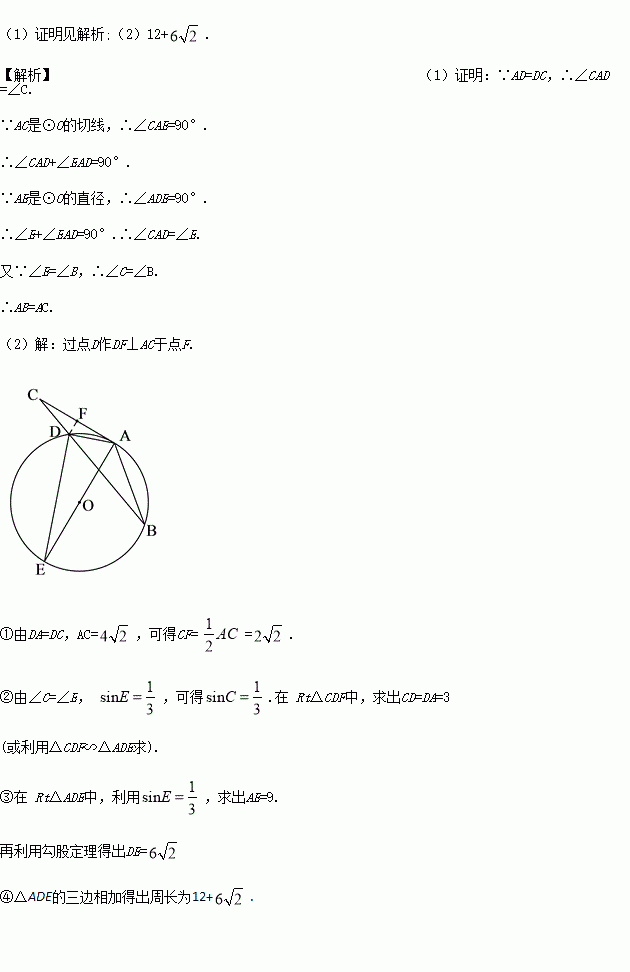 (1)证明见解析;(2)12+6√2.
【解析】 (1)证明:∵AD=DC,∴∠CAD
=∠C.
∵AC是⊙O的切线,∴∠CAE=90°.
∴∠CAD+∠EAD=90°.
∵AE是⊙O的直径,∴∠ADE=90°.
∴∠E+∠EAD=90°.∴∠CAD=∠E.
又∵∠E=∠B,∴∠C=∠B.
∴AB=AC.
(2)解:过点D作DF⊥AC于点F.
C
F
D
A
O
B
E
①由DA=DC,AC=4√2,可得CF=1/2 AC=2√2.
②由∠C=∠E, sinE=1/3,可得sinC=1/3.在 Rt△CDF中,求出CD=DA=3
(或利用△CDF∽△ADE求).
③在 Rt△ADE中,利用sinE=1/3,求出AE=9.
再利用勾股定理得出DE=6√2
④△ADE的三边相加得出周长为12+6√2.